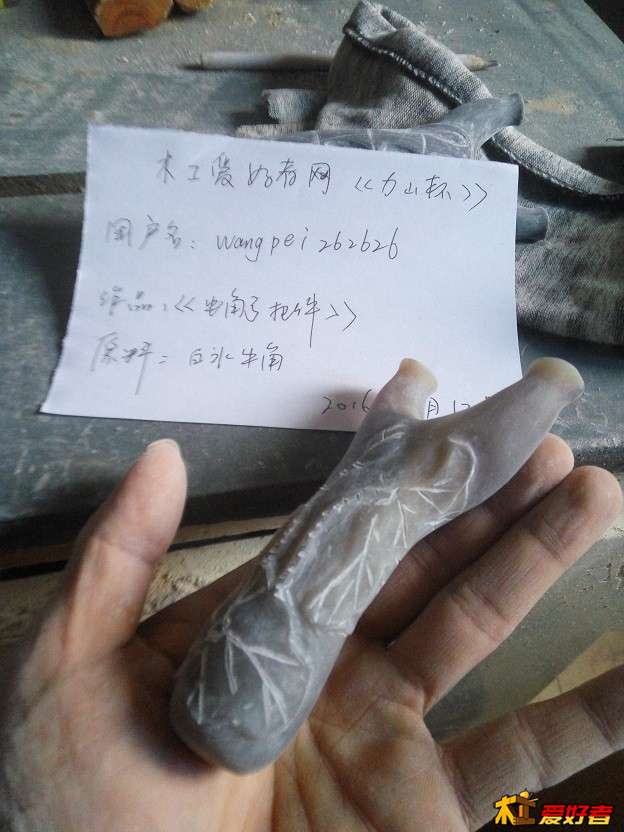 木工爱好者网《力山杯》
用户名: wangpei262626
作品:《牛角弓把件》
原料: 白水牛角
2016 月12
木工爱好者